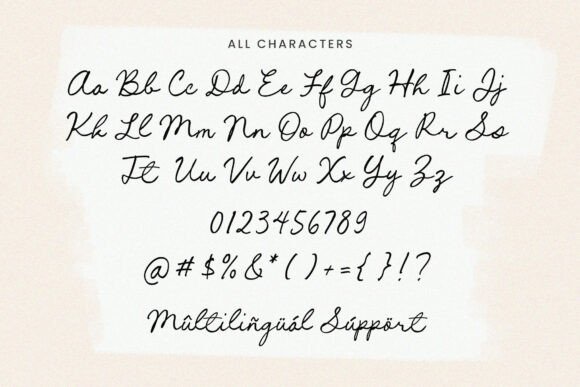 ALL CHARACTERS
Aa Bb Cc Dd Ee Ff Gg Hh Ii Jj
Kk Ll Mm Nn Oo Pp Qq Rr Ss
Tt Uu Vv Ww Xx Yy Zz
0123456789
@#$%&*()+={}!?
Mûltiliñgüál Súppört